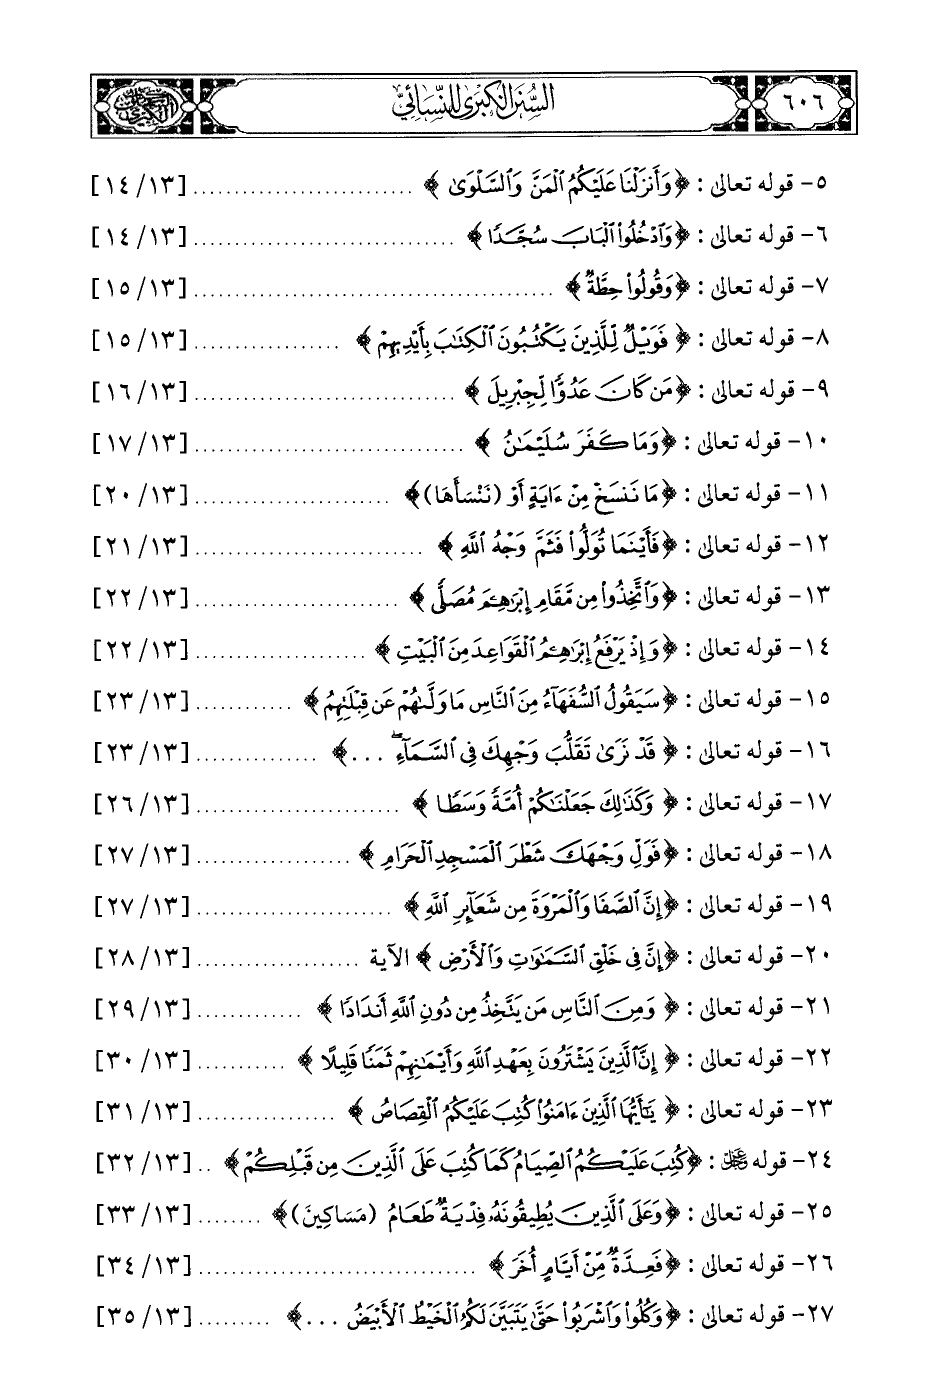 السنن الكبرى للنسائي
٦٠٦
٥- قوله تعالى : ﴿وَأَنزَلْنَا عَلَيْكُمُ ٱلْمَنَّ وَٱلسَّلْوَىٰ﴾ ........................... [١٤/١٣]
٦- قوله تعالى : ﴿وَٱدْخُلُوا۟ ٱلْبَابَ سُجَّدًا﴾ ................................ [١٤/١٣]
٧- قوله تعالى : ﴿وَقُولُوا۟ حِطَّةٌ﴾ ............................................ [١٥/١٣]
٨- قوله تعالى : ﴿فَوَيْلٌ لِّلَّذِينَ يَكْتُبُونَ ٱلْكِتَـٰبَ بِأَيْدِيهِمْ﴾ .................. [١٥/١٣]
٩- قوله تعالى : ﴿مَن كَانَ عَدُوًّا لِّجِبْرِيلَ﴾ ................................ [١٦/١٣]
١٠- قوله تعالى : ﴿وَمَا كَفَرَ سُلَيْمَـٰنُ﴾ ................................. [١٧/١٣]
١١- قوله تعالى : ﴿مَا نَنسَخْ مِنْ ءَايَةٍ أَوْ (نَنْسَأْهَا)﴾ ........................ [٢٠/١٣]
١٢- قوله تعالى : ﴿فَأَيْنَمَا تُوَلُّوا۟ فَثَمَّ وَجْهُ ٱللَّهِ﴾ ............................ [٢١/١٣]
١٣- قوله تعالى : ﴿وَٱتَّخِذُوا۟ مِن مَّقَامِ إِبْرَٰهِـۧمَ مُصَلًّى﴾ ......................... [٢٢/١٣]
١٤- قوله تعالى : ﴿وَإِذْ يَرْفَعُ إِبْرَٰهِـۧمُ ٱلْقَوَاعِدَ مِنَ ٱلْبَيْتِ﴾ ..................... [٢٢/١٣]
١٥- قوله تعالى : ﴿سَيَقُولُ ٱلسُّفَهَآءُ مِنَ ٱلنَّاسِ مَا وَلَّىٰهُمْ عَن قِبْلَتِهِمُ﴾ ............ [٢٣/١٣]
١٦- قوله تعالى : ﴿قَدْ نَرَىٰ تَقَلُّبَ وَجْهِكَ فِى ٱلسَّمَآءِ ۖ ...﴾ ............... [٢٣/١٣]
١٧- قوله تعالى : ﴿وَكَذَٰلِكَ جَعَلْنَـٰكُمْ أُمَّةً وَسَطًا﴾ ......................... [٢٦/١٣]
١٨- قوله تعالى : ﴿فَوَلِّ وَجْهَكَ شَطْرَ ٱلْمَسْجِدِ ٱلْحَرَامِ﴾ ................... [٢٧/١٣]
١٩- قوله تعالى : ﴿إِنَّ ٱلصَّفَا وَٱلْمَرْوَةَ مِن شَعَآئِرِ ٱللَّهِ﴾ ........................ [٢٧/١٣]
٢٠- قوله تعالى : ﴿إِنَّ فِى خَلْقِ ٱلسَّمَـٰوَٰتِ وَٱلْأَرْضِ﴾ الآية .................... [٢٨/١٣]
٢١- قوله تعالى : ﴿وَمِنَ ٱلنَّاسِ مَن يَتَّخِذُ مِن دُونِ ٱللَّهِ أَندَادًا﴾ ............. [٢٩/١٣]
٢٢- قوله تعالى : ﴿إِنَّ ٱلَّذِينَ يَشْتَرُونَ بِعَهْدِ ٱللَّهِ وَأَيْمَـٰنِهِمْ ثَمَنًا قَلِيلًا﴾ ........... [٣٠/١٣]
٢٣- قوله تعالى : ﴿يَـٰٓأَيُّهَا ٱلَّذِينَ ءَامَنُوا۟ كُتِبَ عَلَيْكُمُ ٱلْقِصَاصُ﴾ ................. [٣١/١٣]
٢٤- قوله ﷻ : ﴿كُتِبَ عَلَيْكُمُ ٱلصِّيَامُ كَمَا كُتِبَ عَلَى ٱلَّذِينَ مِن قَبْلِكُمْ﴾ .. [٣٢/١٣]
٢٥- قوله تعالى : ﴿وَعَلَى ٱلَّذِينَ يُطِيقُونَهُۥ فِدْيَةٌ طَعَامُ (مَسَاكِينَ)﴾ ........ [٣٣/١٣]
٢٦- قوله تعالى : ﴿فَعِدَّةٌ مِّنْ أَيَّامٍ أُخَرَ﴾ .................................. [٣٤/١٣]
٢٧- قوله تعالى : ﴿وَكُلُوا۟ وَٱشْرَبُوا۟ حَتَّىٰ يَتَبَيَّنَ لَكُمُ ٱلْخَيْطُ ٱلْأَبْيَضُ ...﴾ ......... [٣٥/١٣]